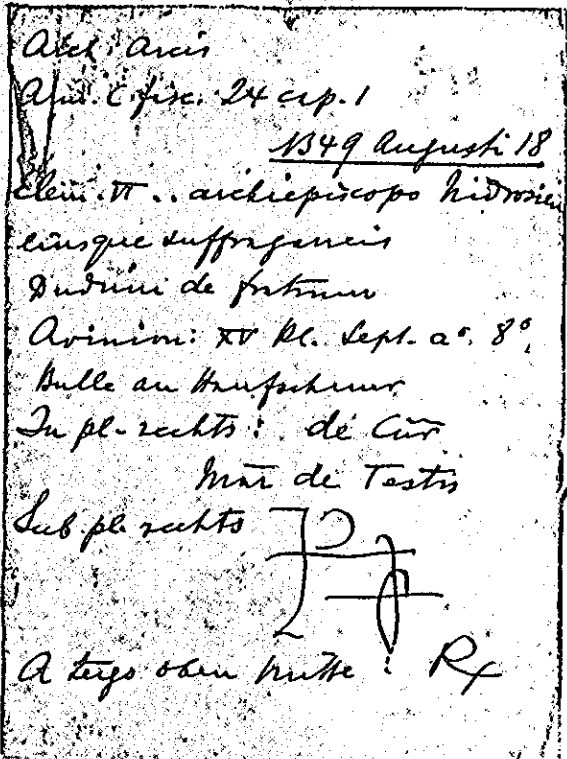 Arch: Arcis
Arm. C. fasc. 24 cap. 1
1349 Augusti 18
Clem. VI .. archiepiscopo Nidrosien
eiusque suffraganeis
Dudum de fratrum
Avinion: XV Kl. Sept. a°. 8°,
Bulle an Hanfschnur
In pl. rechts: de Cur
Mar de Testis
Sub pl. rechts
A tergo oben mitte: Rx